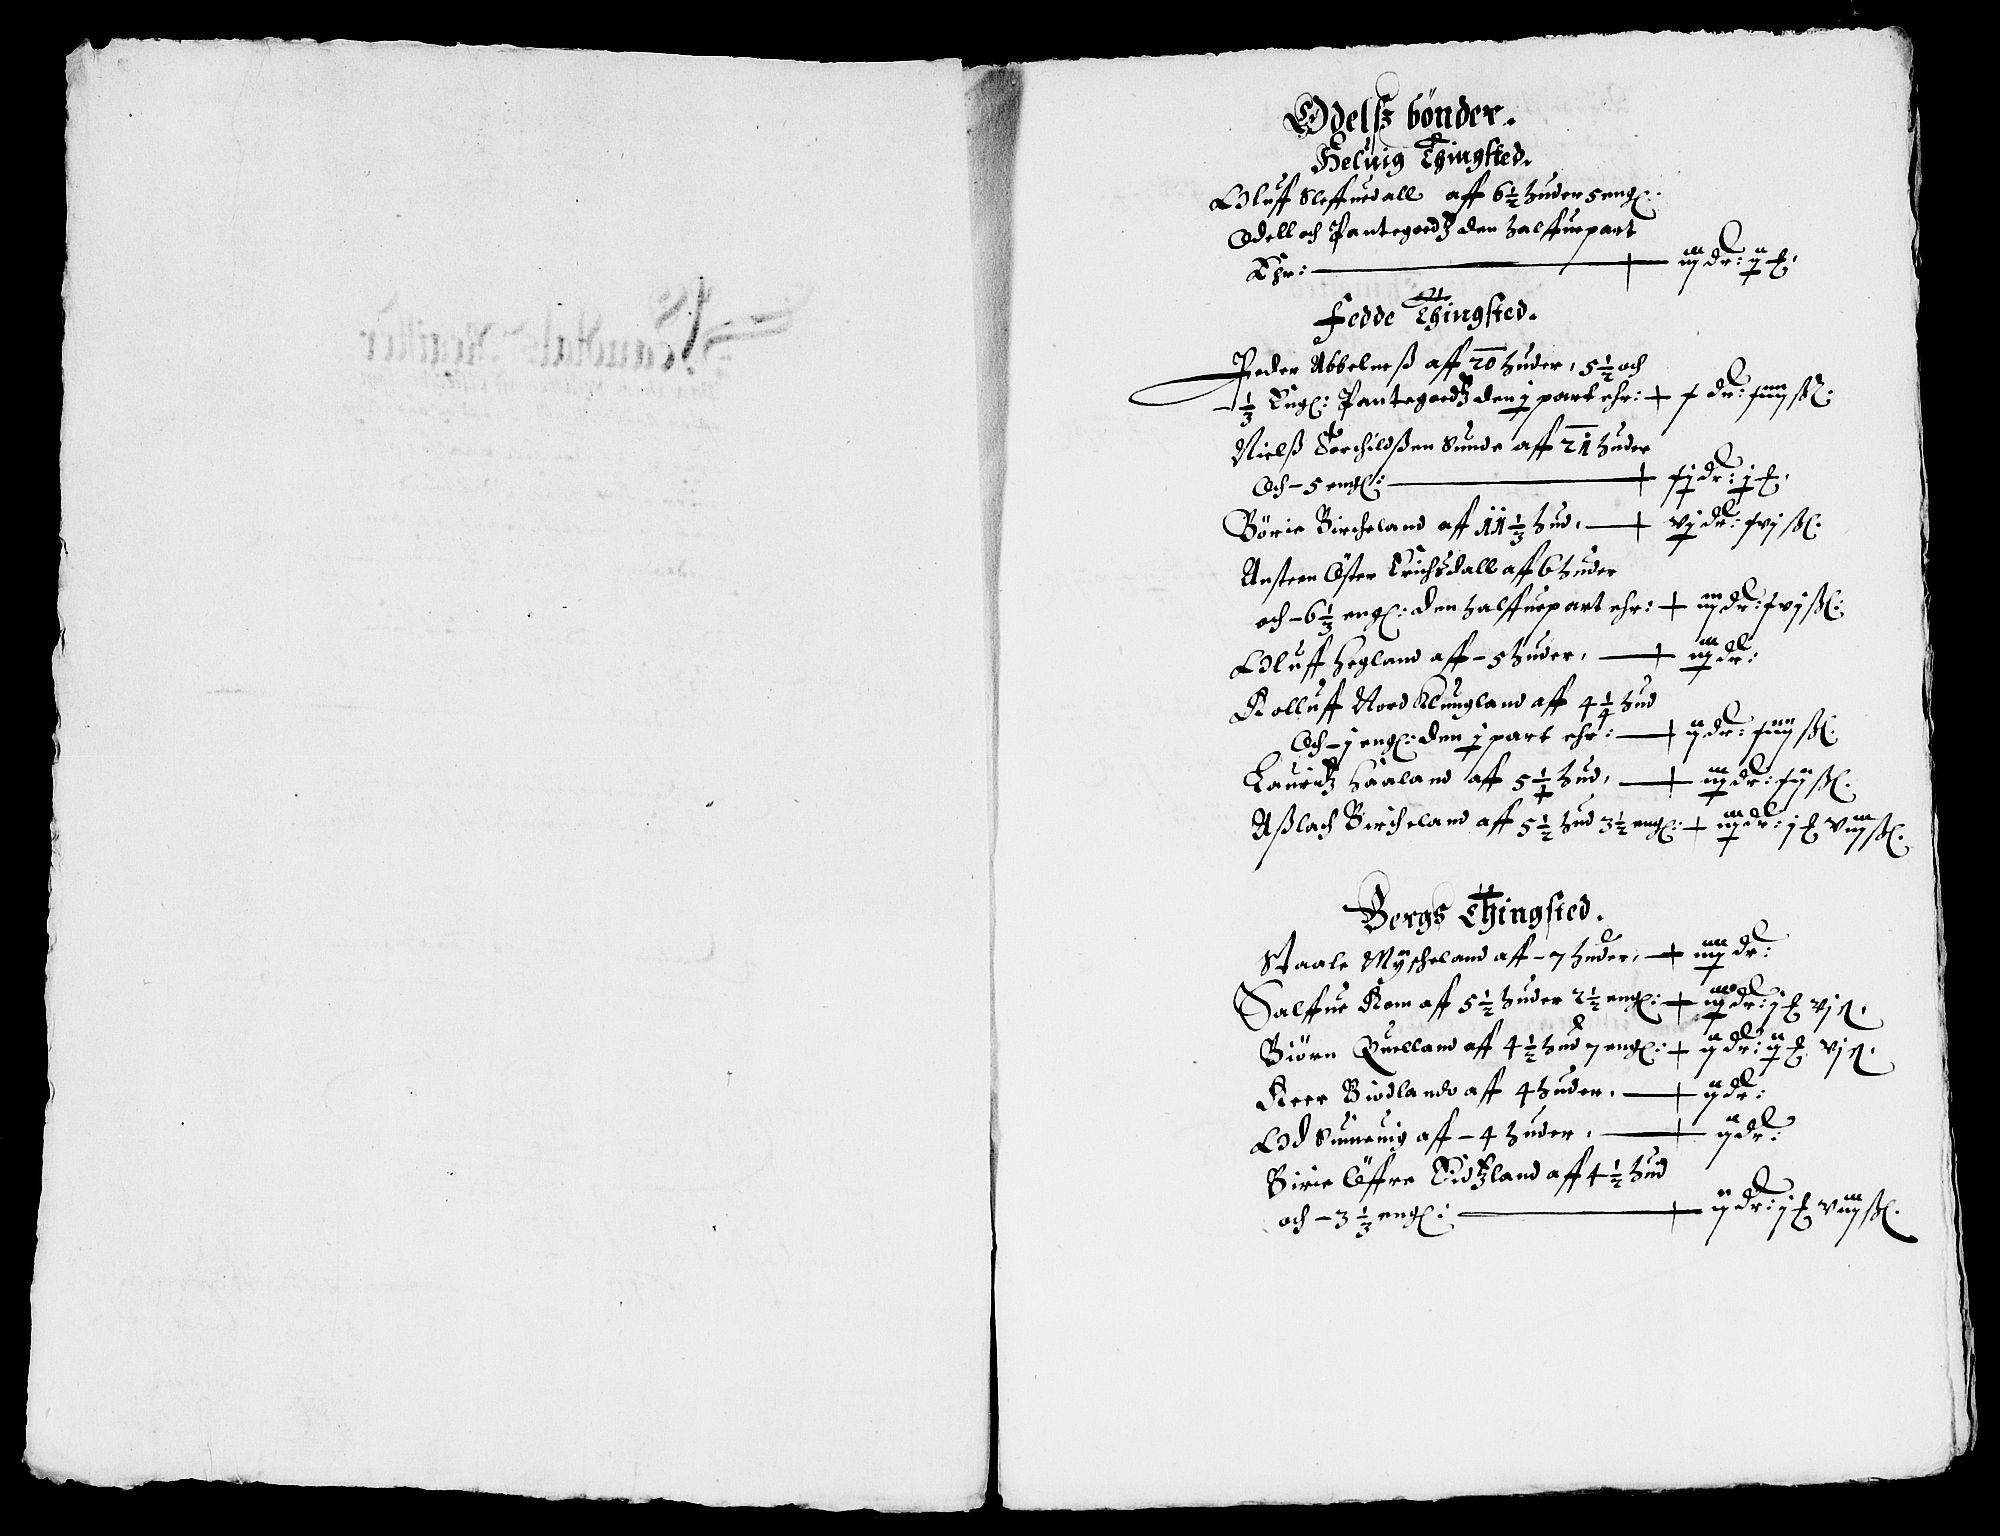 Odelsz bönder.
Heluig Thingsted.
Oluff Sleffuedall aff 6½ huder 5 eng:
Odell och Pantegodtz den halffuepart
Ehr: — iij dr: ij ₤.
Fedde Thingsted.
Peder Abbelneß aff 20 huder, 5½ och
⅓ Eng: Pantegodtz den j part ehr: — x dr: xiiij ß:
Nielß Torchildßen Sunde aff 21 huder
Och – 5 eng: — xj dr: j ₤.
Börie Bircheland aff 11⅓ hud, — vj dr: xvj ß.
Ansteen Öster Erichsdall aff 6 huder
och – 6⅓ eng: den halffuepart ehr: — iiij dr: xvj ß:
Oluff Hegland aff – 5 huder, — iij dr:
Rolluff Nord Klungland aff 4¼ hud
Och – j eng: den j part ehr: — ij dr: xiiij ß.
Lauridtz Haaland aff 5¼ hud, — iij dr: xij ß.
Aßlach Bircheland aff 5½ hud 3½ eng: — iij dr: j ₤ viij ß.
Bergs Thingsted.
Staale Myscheland aff – 7 huder, — iiij dr:
Salffue Kom aff 5½ huder 2½ eng: — iij dr: j ₤ vj ß.
Biörn Quelland aff 4½ hud 7 eng: — ij dr: ij ₤ vj ß.
Reer Biodland aff 4 huder. — ij dr:
Od Suineuig aff – 4 huder, — ij dr:
Birie Öffre Eidtzland aff 4½ hud
och – 3⅓ eng: — ij dr: j ₤ viij ß.